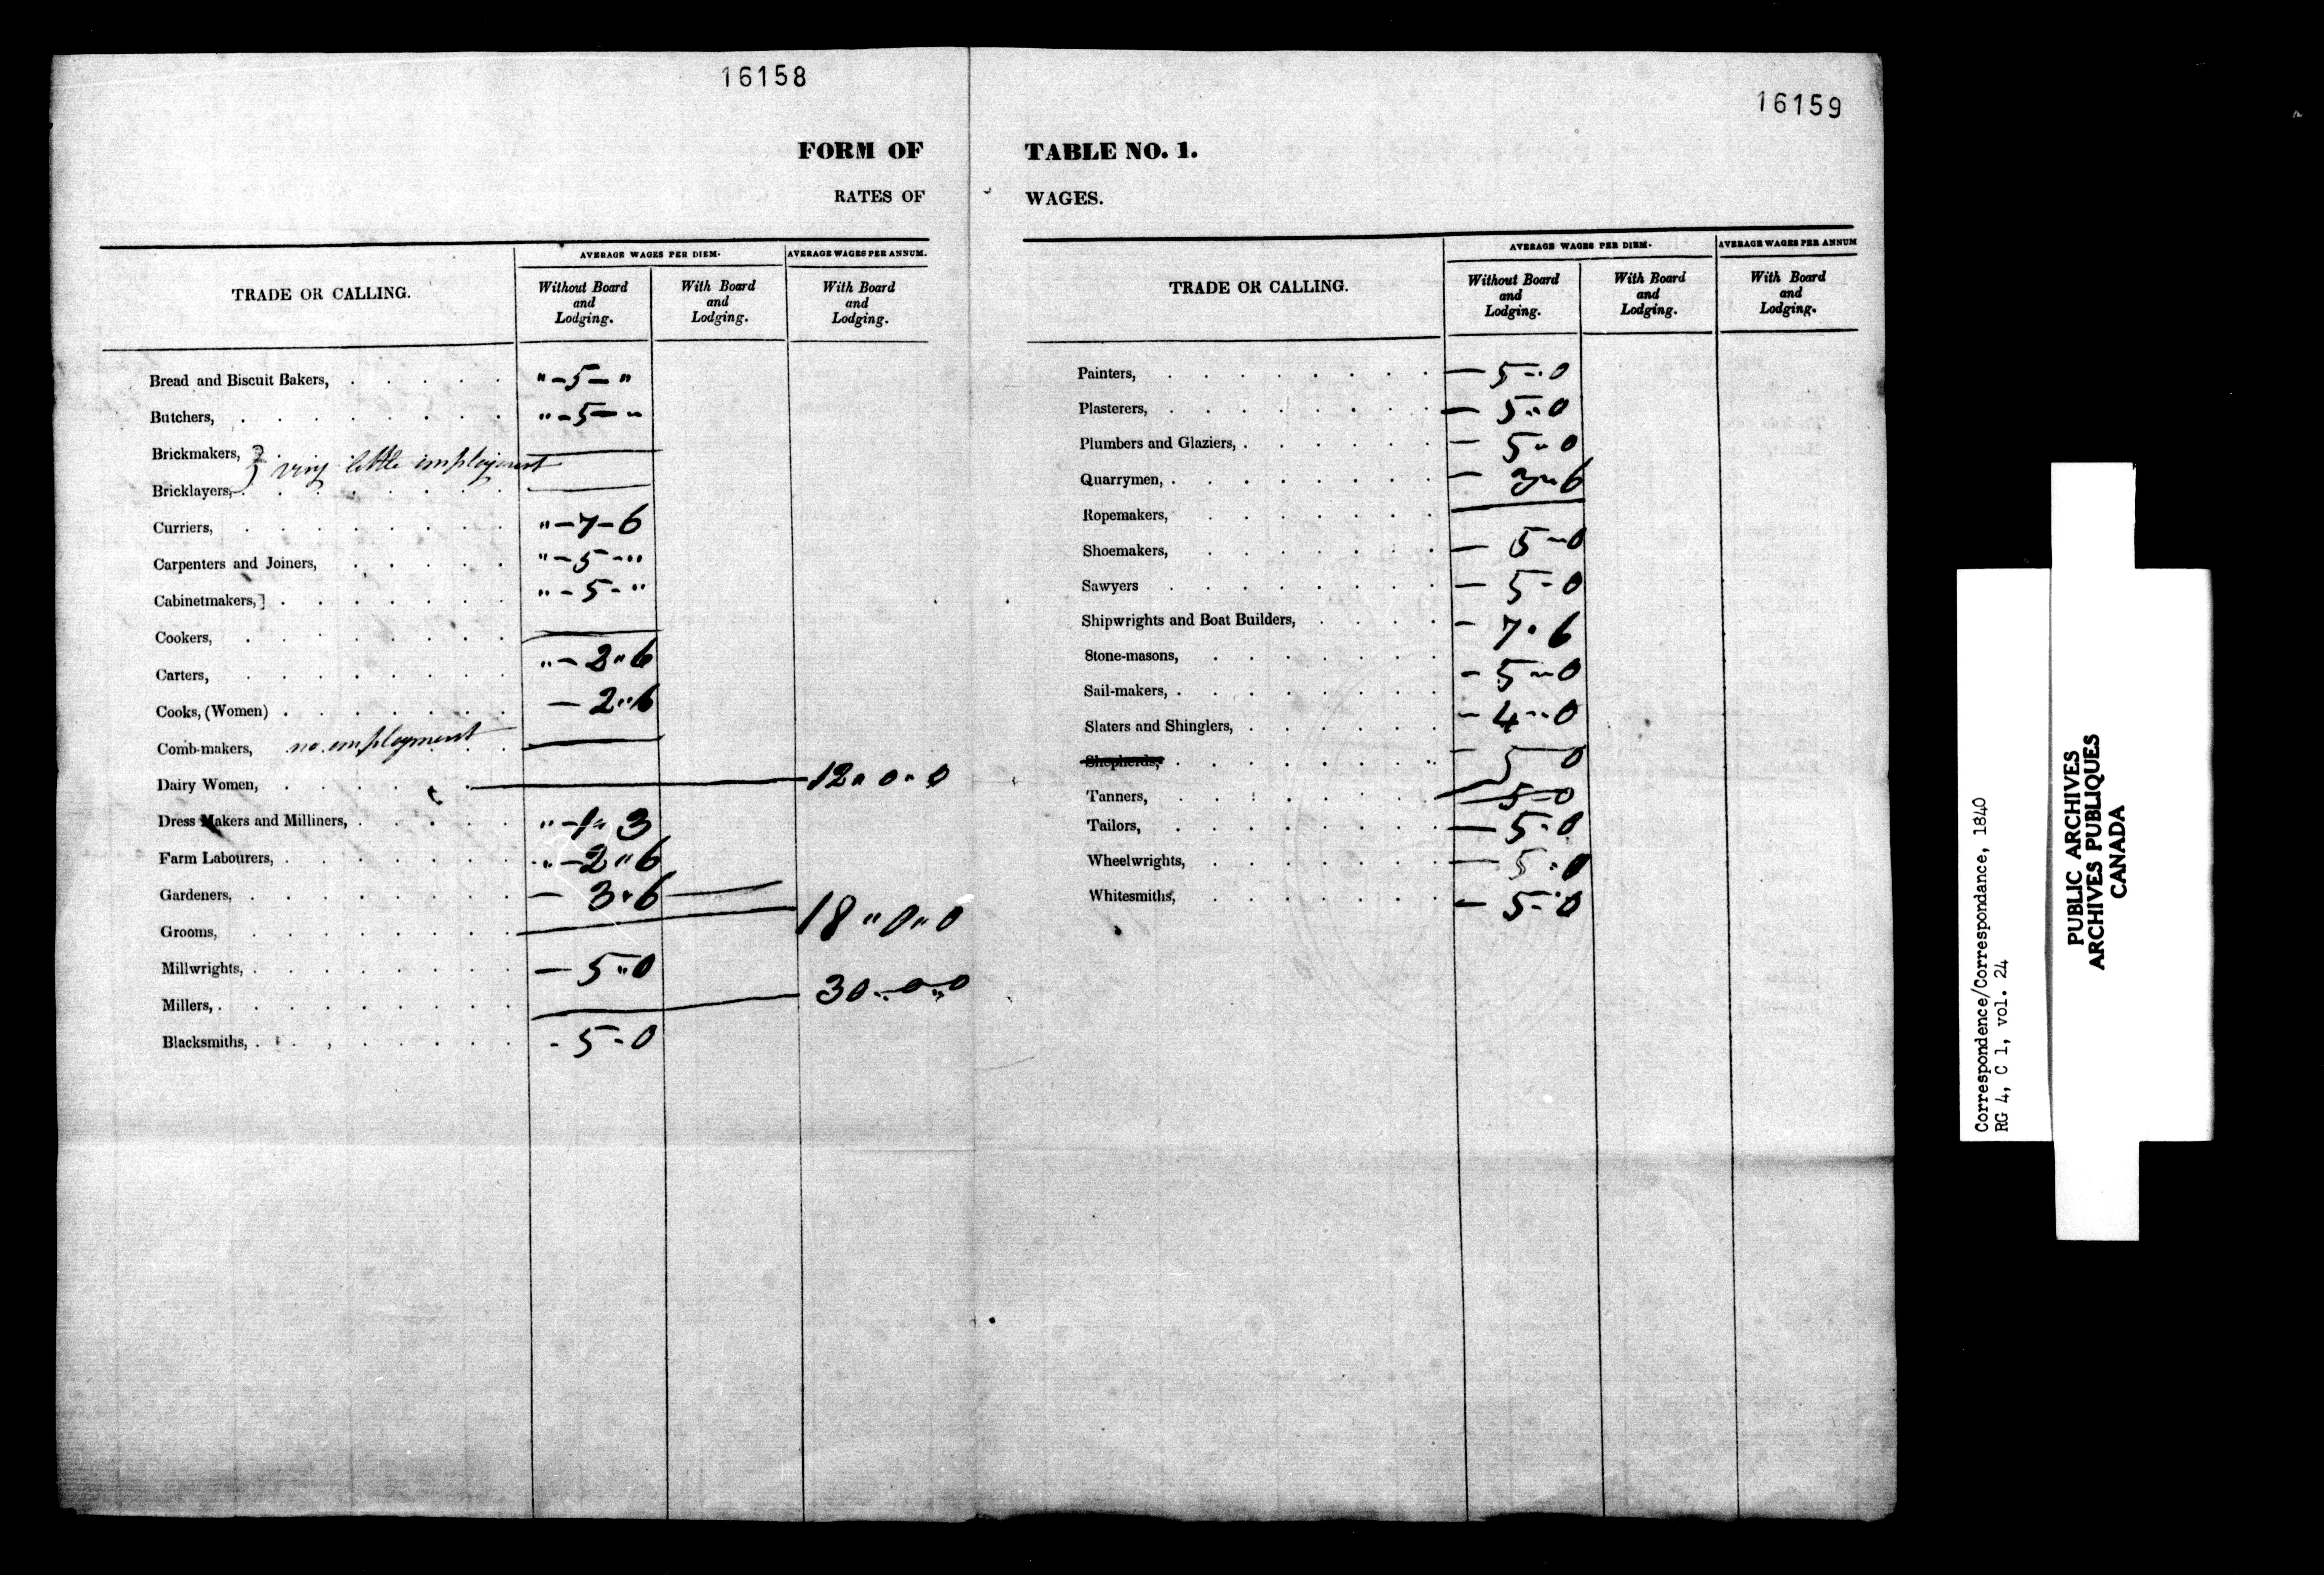 16158
FORM OF
RATES OF
TRADE OR CALLING.
AVERAGE WAGES PER DIEM.
AVERAGE WAGES PER ANNUM.
Without Board and Lodging.
With Board and Lodging.
With Board and Lodging.
Bread and Biscuit Bakers, . . . . . " - 5 - "
Butchers, . . . . . . . . " - 5 - "
Brickmakers, } very little employment
Bricklayers,
Curriers, . . . . . . . . " - 7 - 6
Carpenters and Joiners, . . . . . " - 5 - "
Cabinetmakers,] . . . . . . . " - 5 - "
Cookers, . . . . . . . .
Carters, . . . . . . . . " - 2 " 6
Cooks, (Women) . . . . . . . — 2 " 6
Comb-makers, no employment
Dairy Women, . . . . . . 12 " 0 " 0
Dress Makers and Milliners, . . . . . " - 1 " 3
Farm Labourers, . . . . . . . " - 2 " 6
Gardeners, . . . . . . . . — 3 " 6
Grooms, . . . . . . . . 18 " 0 " 0
Millwrights, . . . . . . . . — 5 " 0
Millers, . . . . . . . . . 30 " 0 " 0
Blacksmiths, . . . , . . . . . - 5 - 0
16159
TABLE NO. 1.
WAGES.
TRADE OR CALLING.
AVERAGE WAGES PER DIEM.
AVERAGE WAGES PER ANNUM
Without Board and Lodging.
With Board and Lodging.
With Board and Lodging.
Painters, . . . . . . . . — 5 - 0
Plasterers, . . . . . . . . — 5 " 0
Plumbers and Glaziers, . . . . . . — 5 " 0
Quarrymen, . . . . . . . . — 3 " 6
Ropemakers, . . . . . . .
Shoemakers, . . . . . . . — 5 - 0
Sawyers . . . . . . . . — 5 - 0
Shipwrights and Boat Builders, . . . . - 7 " 6
Stone-masons, . . . . . . . - 5 - 0
Sail-makers, . . . . . . . . - 4 - 0
Slaters and Shinglers, . . . . . . — 5 0
Shepherds, . . . . . . . .
Tanners, . . . . . . . 5 - 0
Tailors, . . . . . . . . — 5 - 0
Wheelwrights, . . . . . . . — 5 " 0
Whitesmiths, . . . . . . . — 5 - 0
Correspondence/Correspondance, 1840
RG 4, C 1, vol. 24
PUBLIC ARCHIVES
ARCHIVES PUBLIQUES
CANADA